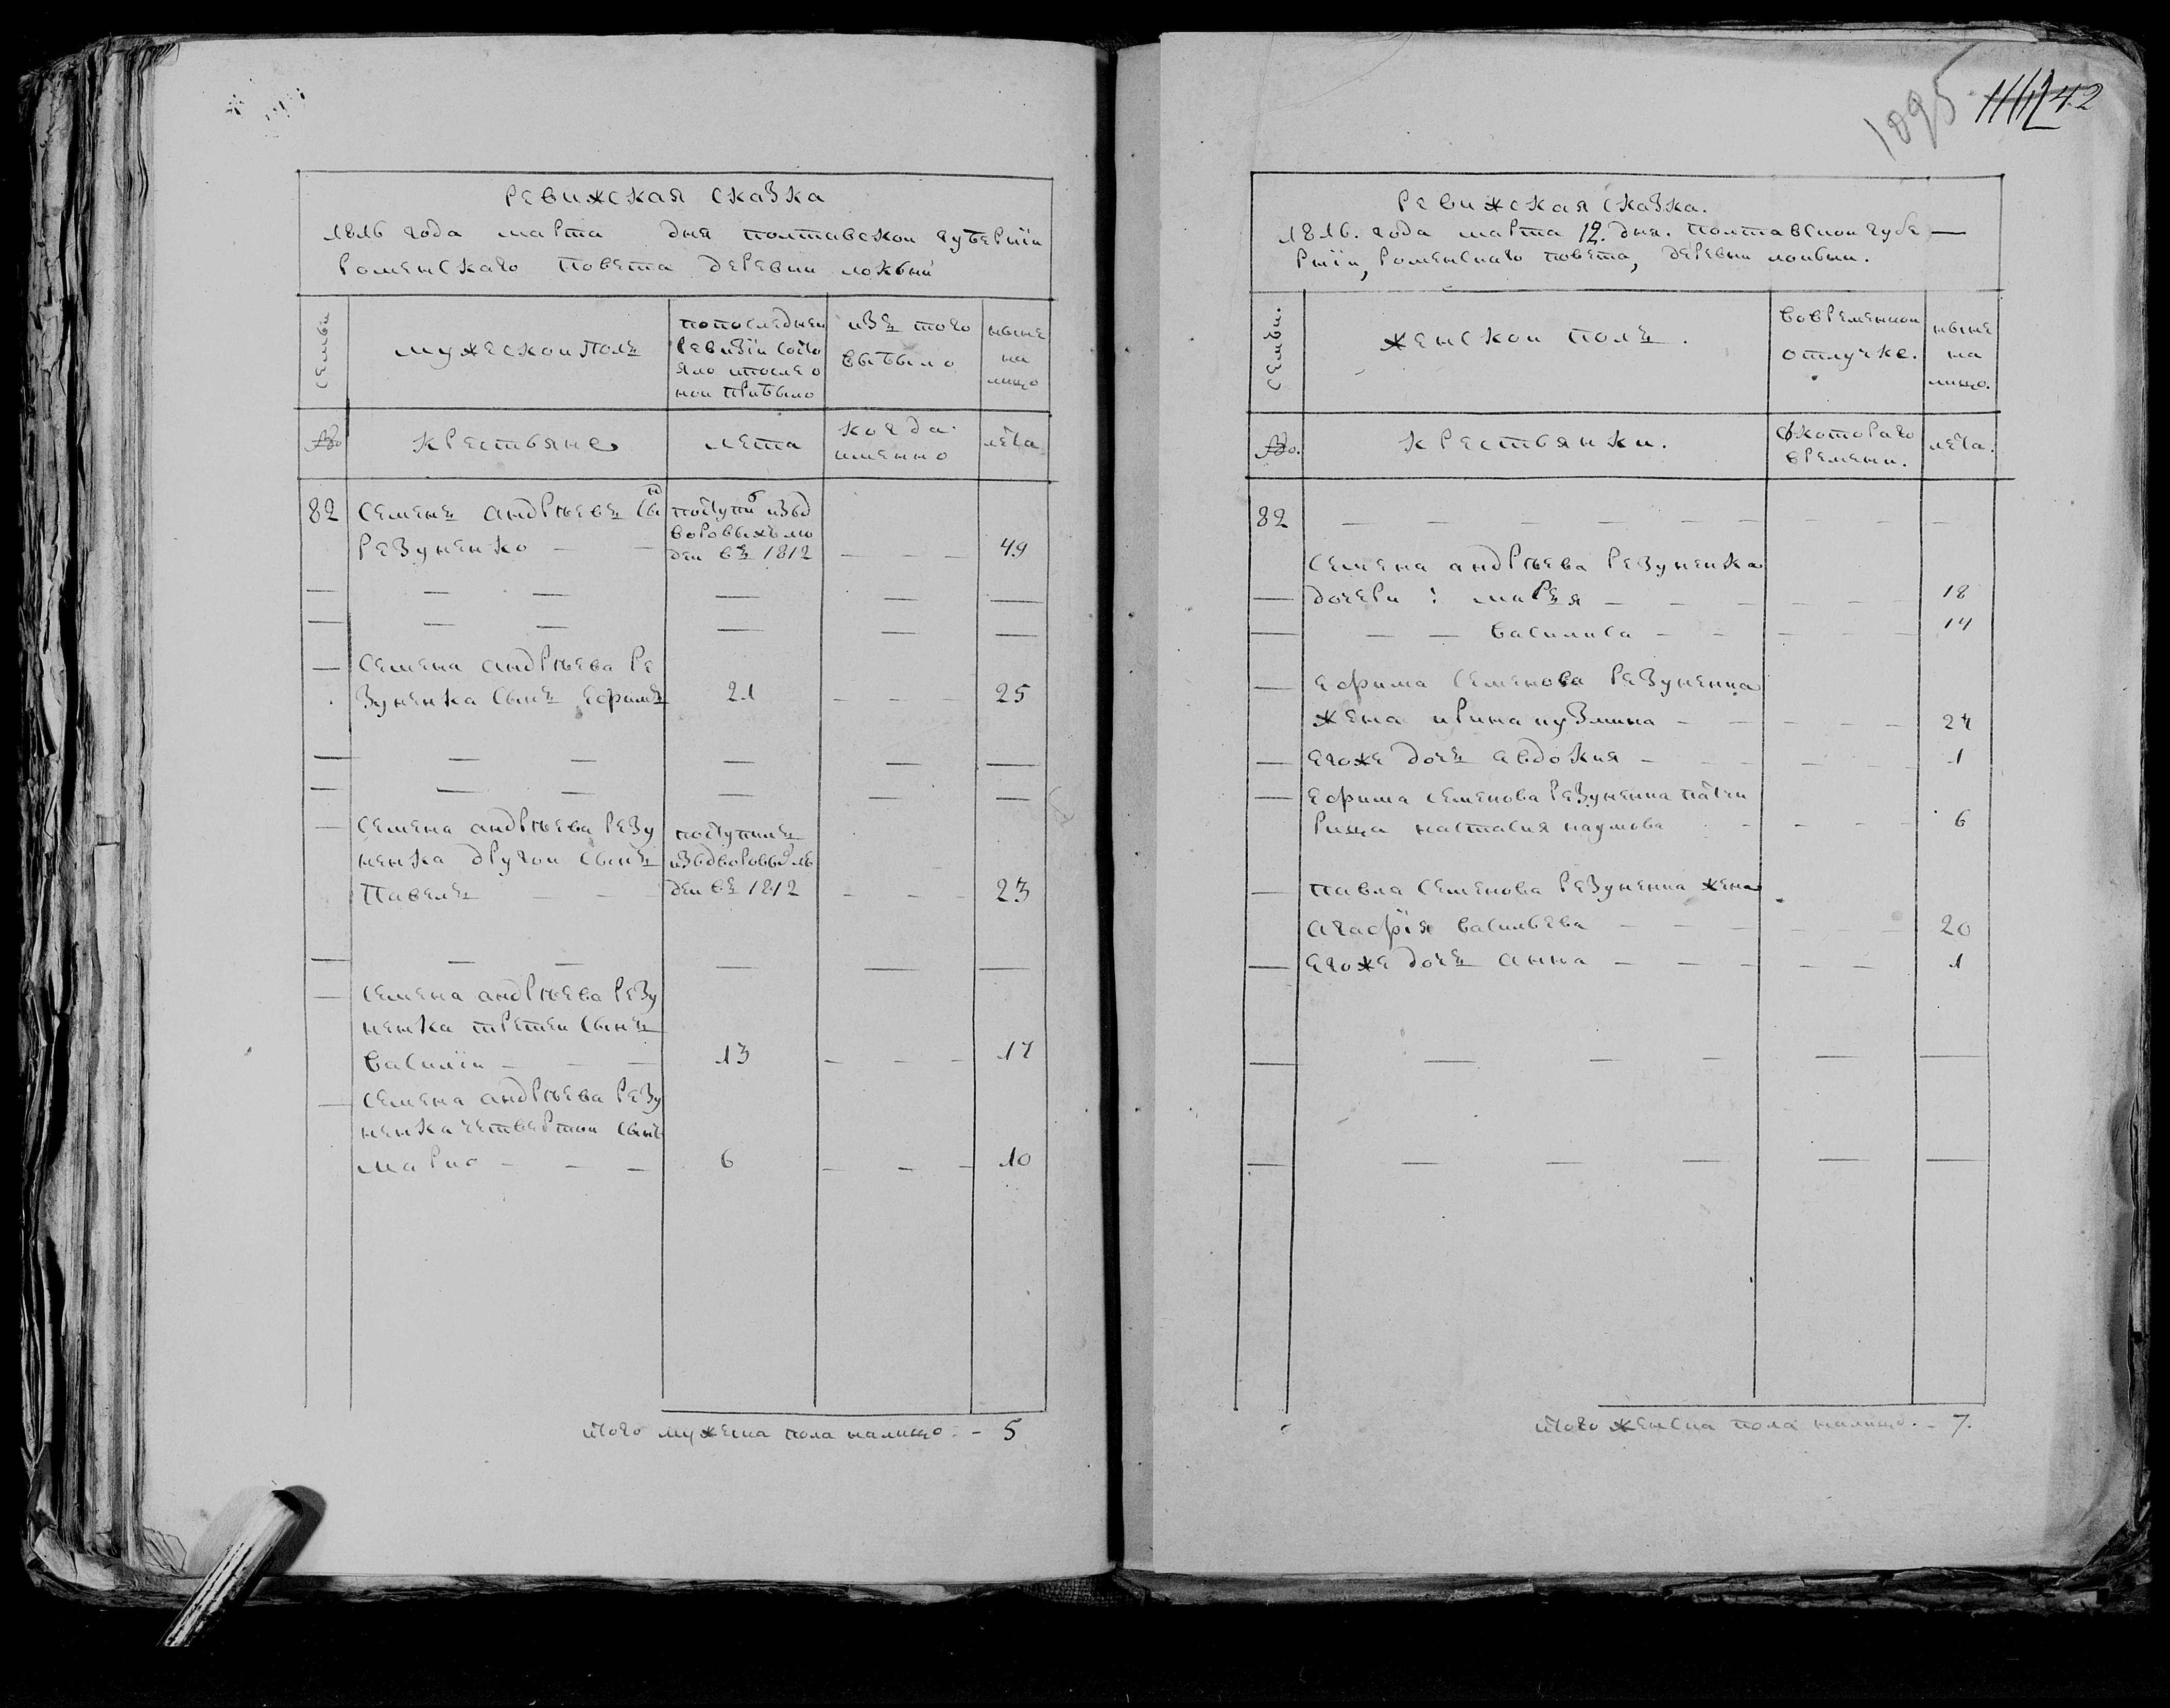 Ревижская сказка
1816 года марта дня полтавской губернiи
Роменскаго повета деревни локвыи
семьи
мужеской полъ
попоследней ревизiи состо яло ипосле о ной прибыло
изъ того выбыло
ныне на лицо
№
крестьяне
лета
когда именно
лета
82 Семенъ андрѣевъ сы(нъ) поступи(л) изъд
Резуненко — — воровыхълю
дей въ 1812 — — — 49
Семена андрѣева Ре
зуненка сынъ Ефримъ 21 — — — 25
Семена андрѣева Резу поступилъ
ненка другои сынъ изъдворовы(х)ль
Павелъ — — дей въ 1812 — — — 23
Семена андрѣева Резу
ненка третеи сынъ
василiи — — — 13 — — — 17
Семена андрѣева Резу
ненка четвертои сынъ
марко — — — 6 — — — 10
итого мужеска пола налицо. — 5
1095 42
Ревижская сказка.
1816. года марта 12. дня. полтавской губе —
рнiи, роменскаго повета, деревни локвыи.
семьи.
женской полъ.
вовременной отлучке.
ныне на лицо.
№.
крестьянки.
скотораго времени.
лета.
82 — — — — — — — — —
Семена андрѣева Резуненка
дочери: маръя — — — — — — 18
— — василиса — — — — — 14
Ефрима Семенова Резуненка
жена ирина кузмина — — — — — 24
егоже дочъ авдокия — — — — 1
Ефрима Семенова Резуненка падче
рица настасия наумова — — — — 6
павла Семенова Резуненка жена
агафiя васильева — — — — — — 20
егоже дочъ анна — — — — — 1
итого женска пола налицо. — 7.